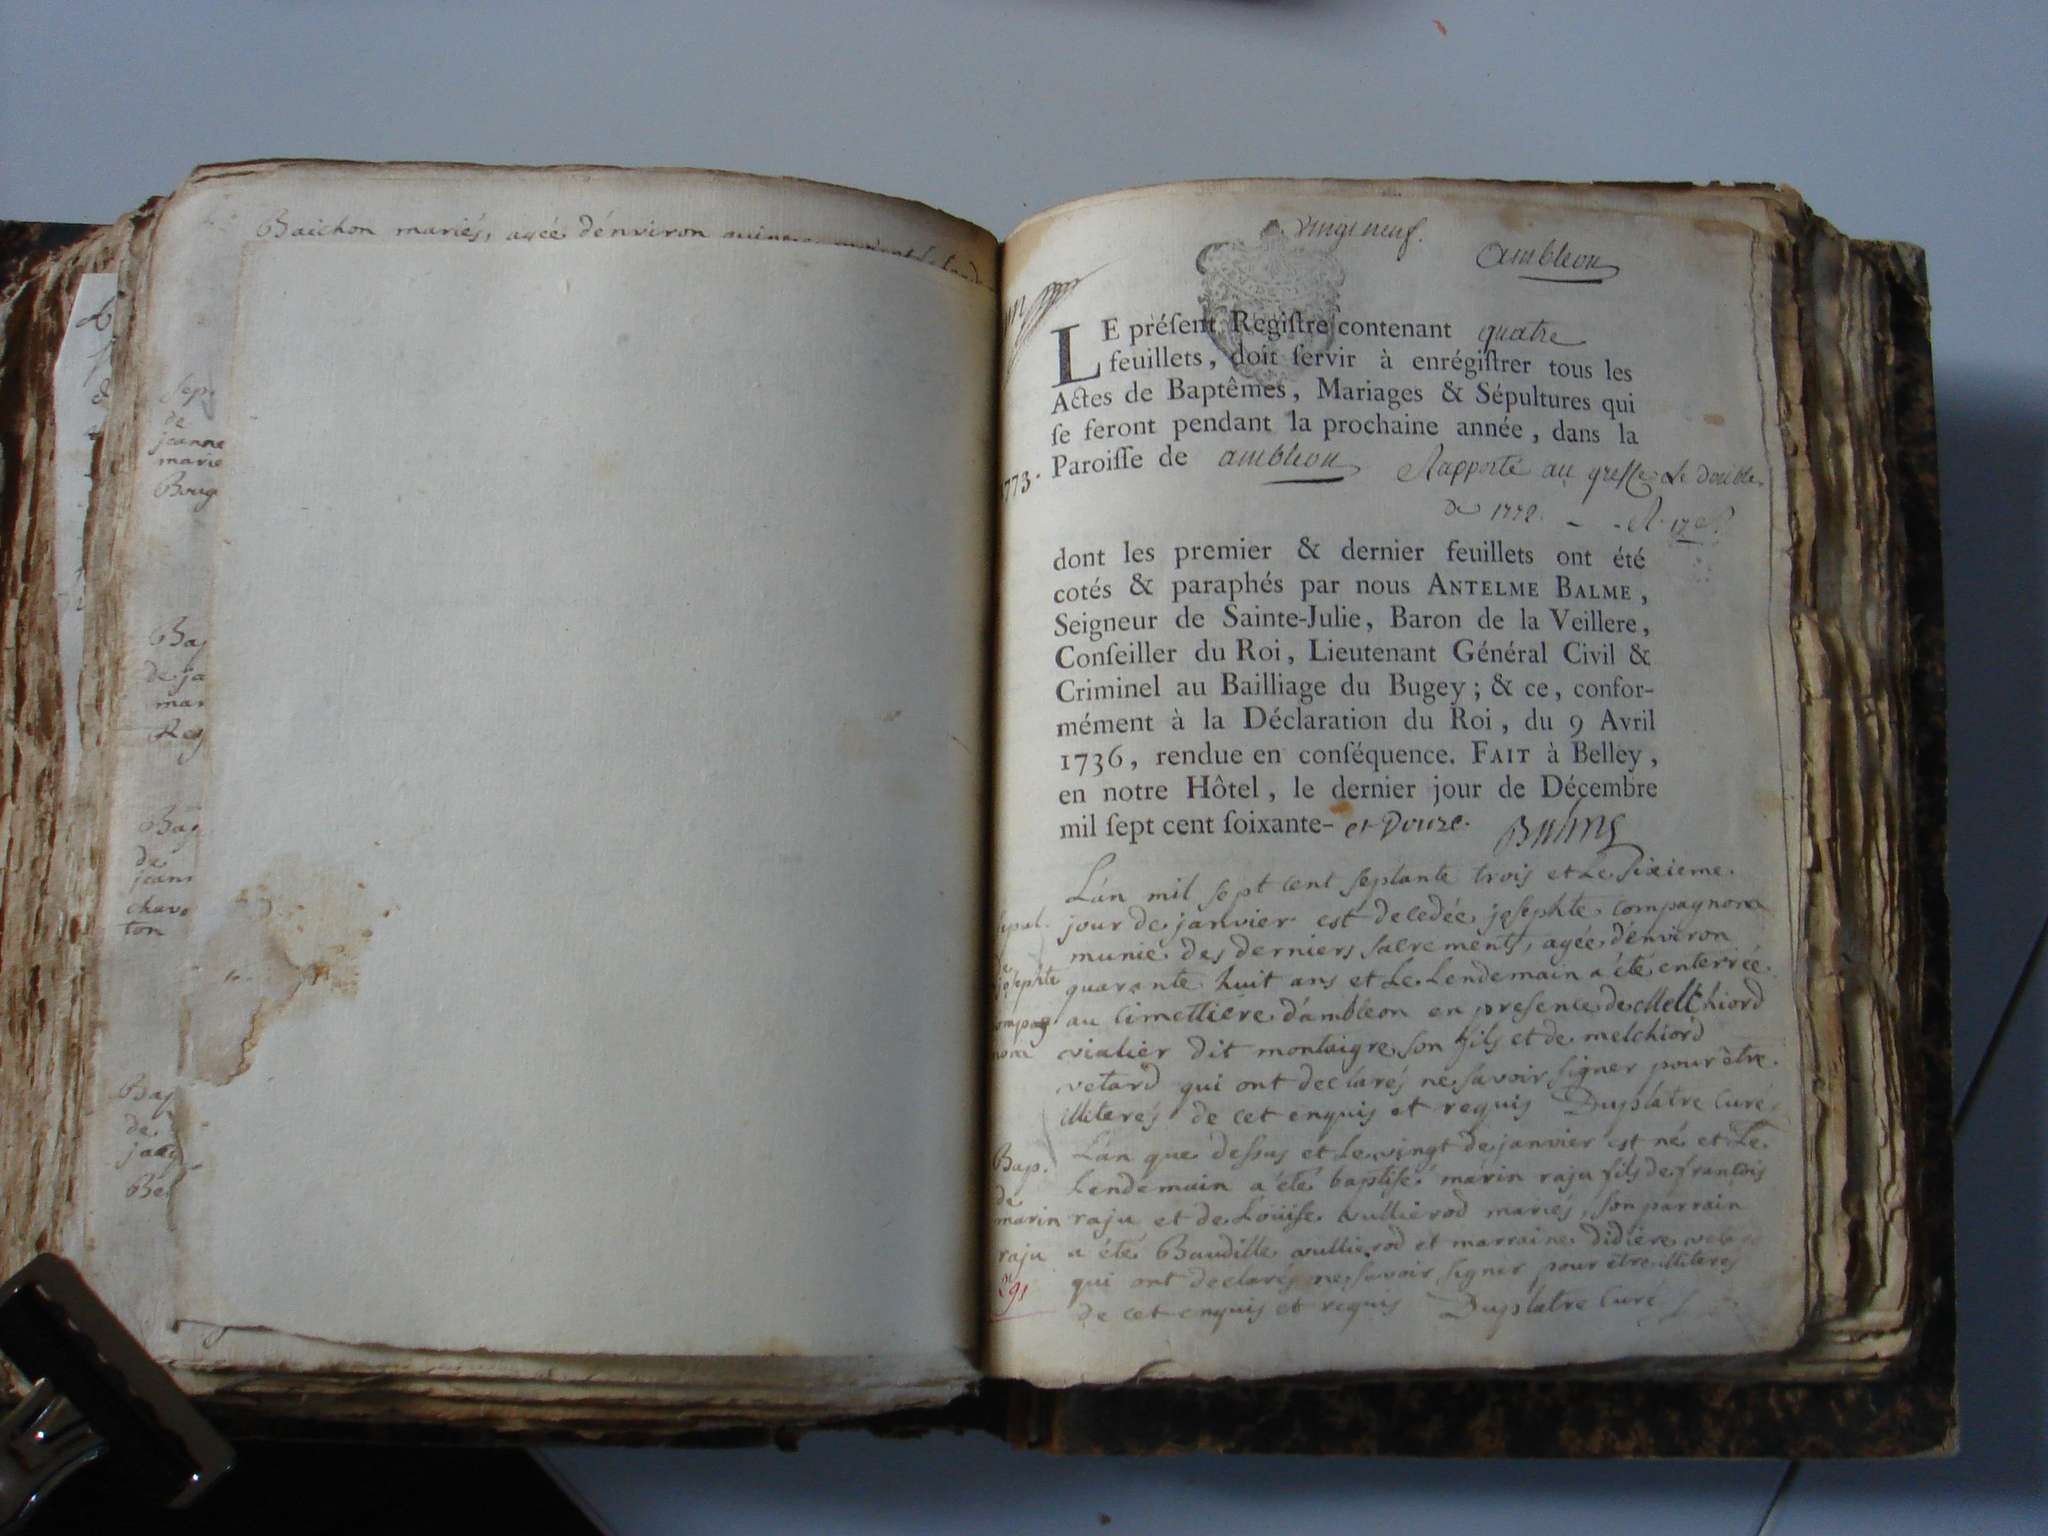 Baichon mariés, agée d'énviron
Sep.
de
jeanne
marie
Boug
Bap
de ja
mar
Rey
Bap
de
jeann
chavo
ton
Bap
de
jacq
Bel
vingt neuf.
ambleon
LE préſent Regiſtre contenant quatre
feuillets, doit ſervir à enrégiſtrer tous les
Actes de Baptêmes, Mariages & Sépultures qui
ſe feront pendant la prochaine année, dans la
Paroiſſe de ambleon Rapporté au greffe Le double
1773.
de 1772.
dont les premier & dernier feuillets ont été
cotés & paraphés par nous ANTELME BALME,
Seigneur de Sainte-Julie, Baron de la Veillere,
Conſeiller du Roi, Lieutenant Général Civil &
Criminel au Bailliage du Bugey; & ce, confor-
mément à la Déclaration du Roi, du 9 Avril
1736, rendue en conſéquence. FAIT à Belley,
en notre Hôtel, le dernier jour de Décembre
mil ſept cent ſoixante- et Douze. Balme
L'an mil sept cent septante trois et Le sixieme
jour de janvier est decedée josephte compagnon
munie des derniers sacrements, agée d'énviron
quarante huit ans et Le Lendemain a été enterrée
au cimettiere d'ambleon en presence de Melchiord
vialier dit montaigre son fils et de melchiord
vetard qui ont declarés ne savoir signer pour être
illiterés de cet enquis et requis Duplatre Curé
Sepul.
de
josephte
compag
non
L'an que dessus et Le vingt de janvier est né et Le
Lendemain a été baptisé marin raju fils de francois
raju et de Loüise vullierod mariés, son parrain
a été Baudille vullierod et marraine didiere
qui ont declarés ne savoir signer pour être illiteres
de cet enquis et requis Duplatre Curé
Bap.
de
marin
raju
291